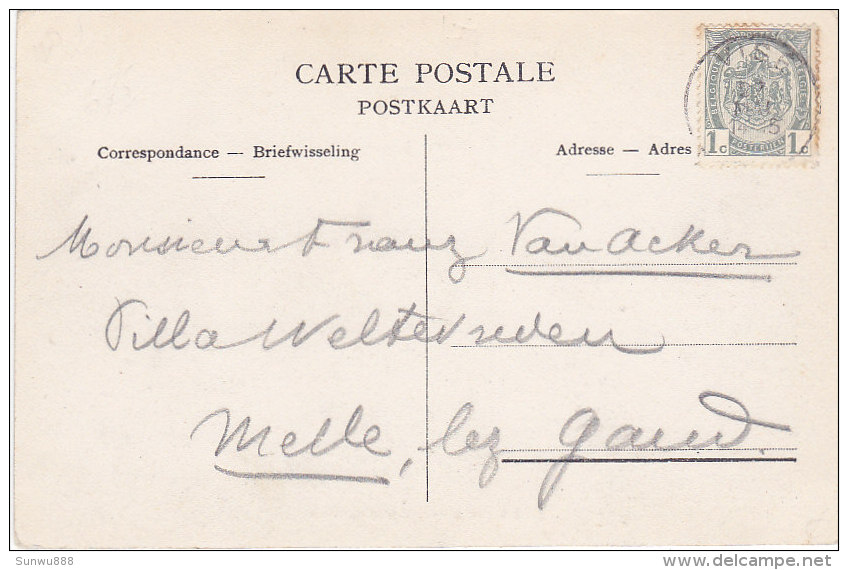 CARTE POSTALE
POSTKAART
Correspondance — Briefwisseling
Adresse — Adres
1c 1c
Monsieur Franz Van Acker
Villa Weltevreden
Melle, lez Gand.
Sunwu888
www.delcampe.net